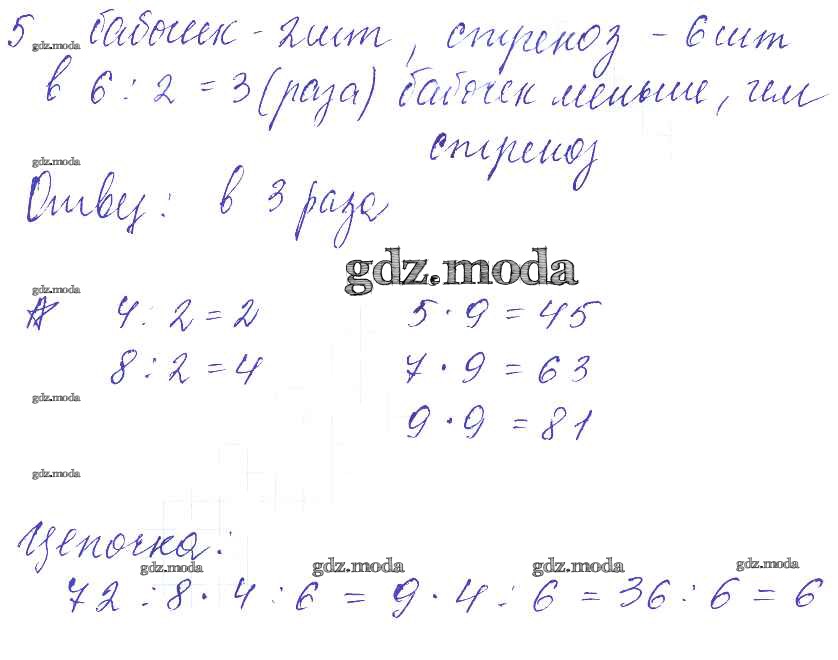 5 бабочек - 2 шт, стрекоз - 6 шт
gdz.moda
в 6 : 2 = 3 (раза) бабочек меньше, чем
стрекоз
gdz.moda
Ответ: в 3 раза
gdz.moda
gdz.moda
4 : 2 = 2 5 · 9 = 45
8 : 2 = 4 7 · 9 = 63
gdz.moda
9 · 9 = 81
gdz.moda
Цепочка:
gdz.moda gdz.moda gdz.moda gdz.moda
72 : 8 · 4 : 6 = 9 · 4 : 6 = 36 : 6 = 6